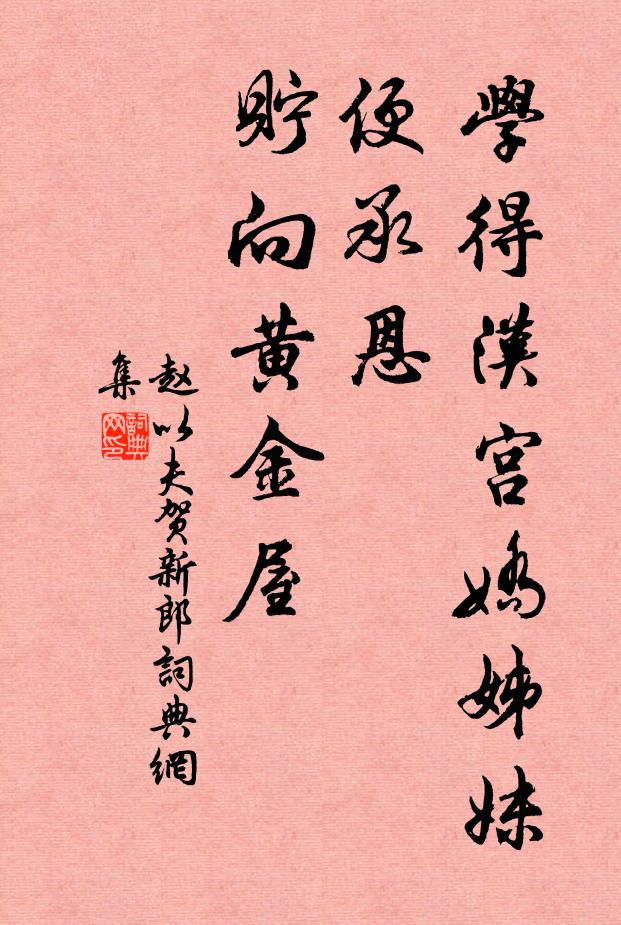 學得漢宮嬌姊妹
便承恩
貯向黄金屋
赵以夫贺新郎詞典網
集
詞典
网印